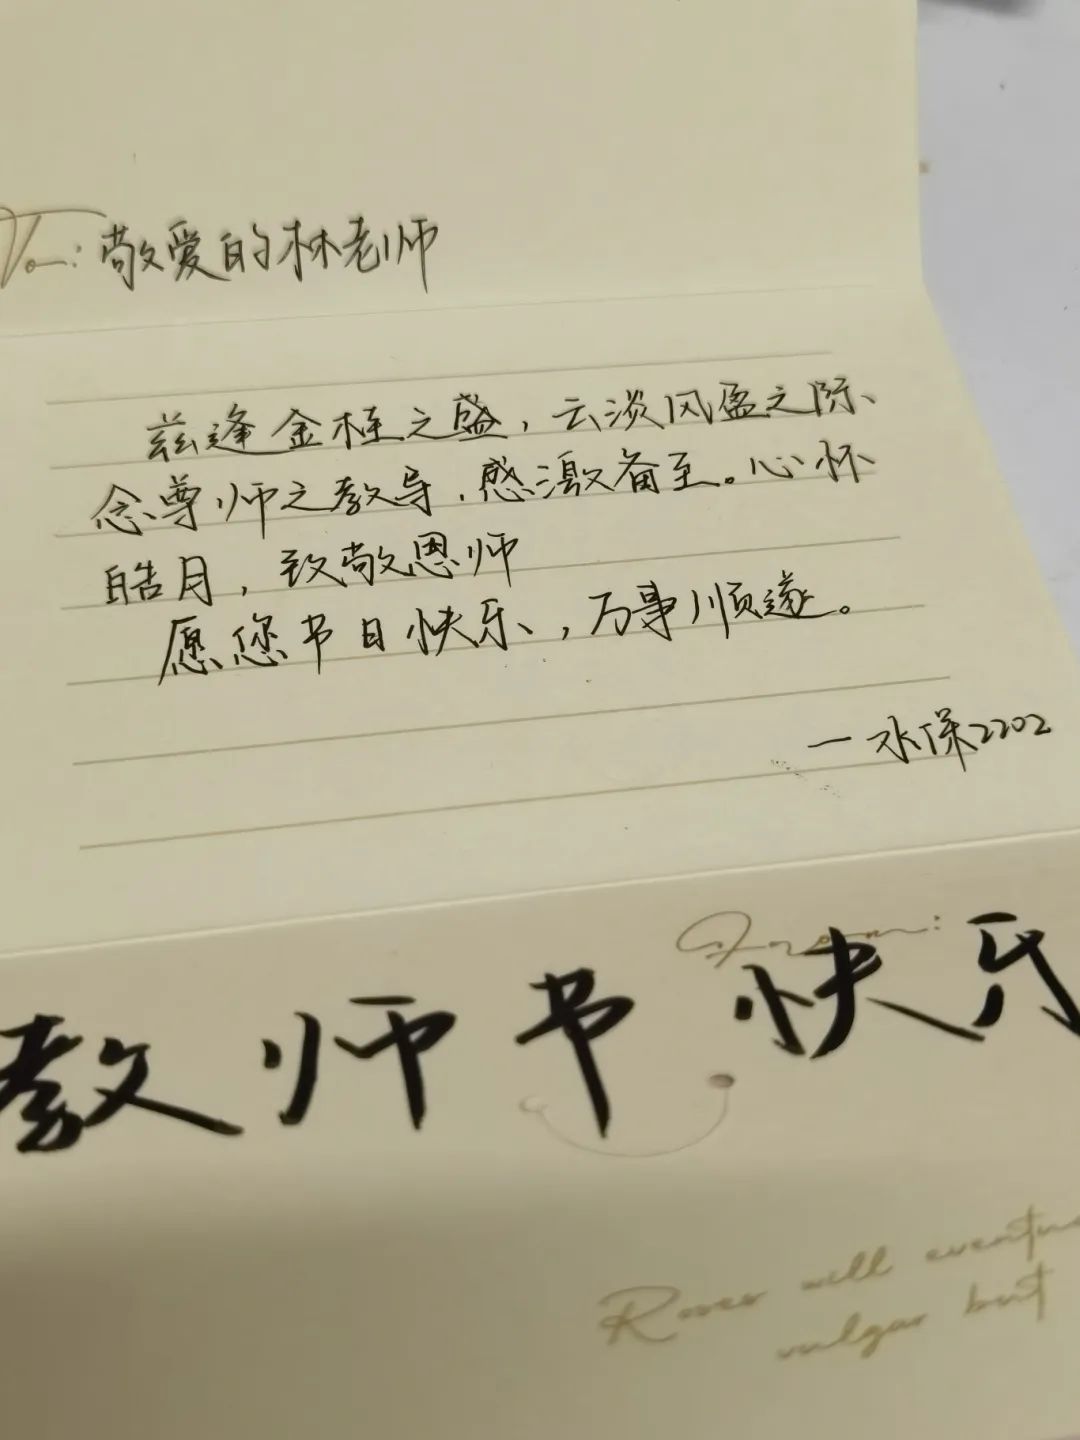 To: 敬爱的林老师
兹逢金桂之盛，云淡风盈之际、
念尊师之教导，感激备至。心怀
皓月，致敬恩师
愿您节日快乐，万事顺遂。
—水保2202
From:
教师节快乐
Roses will
vulgar but